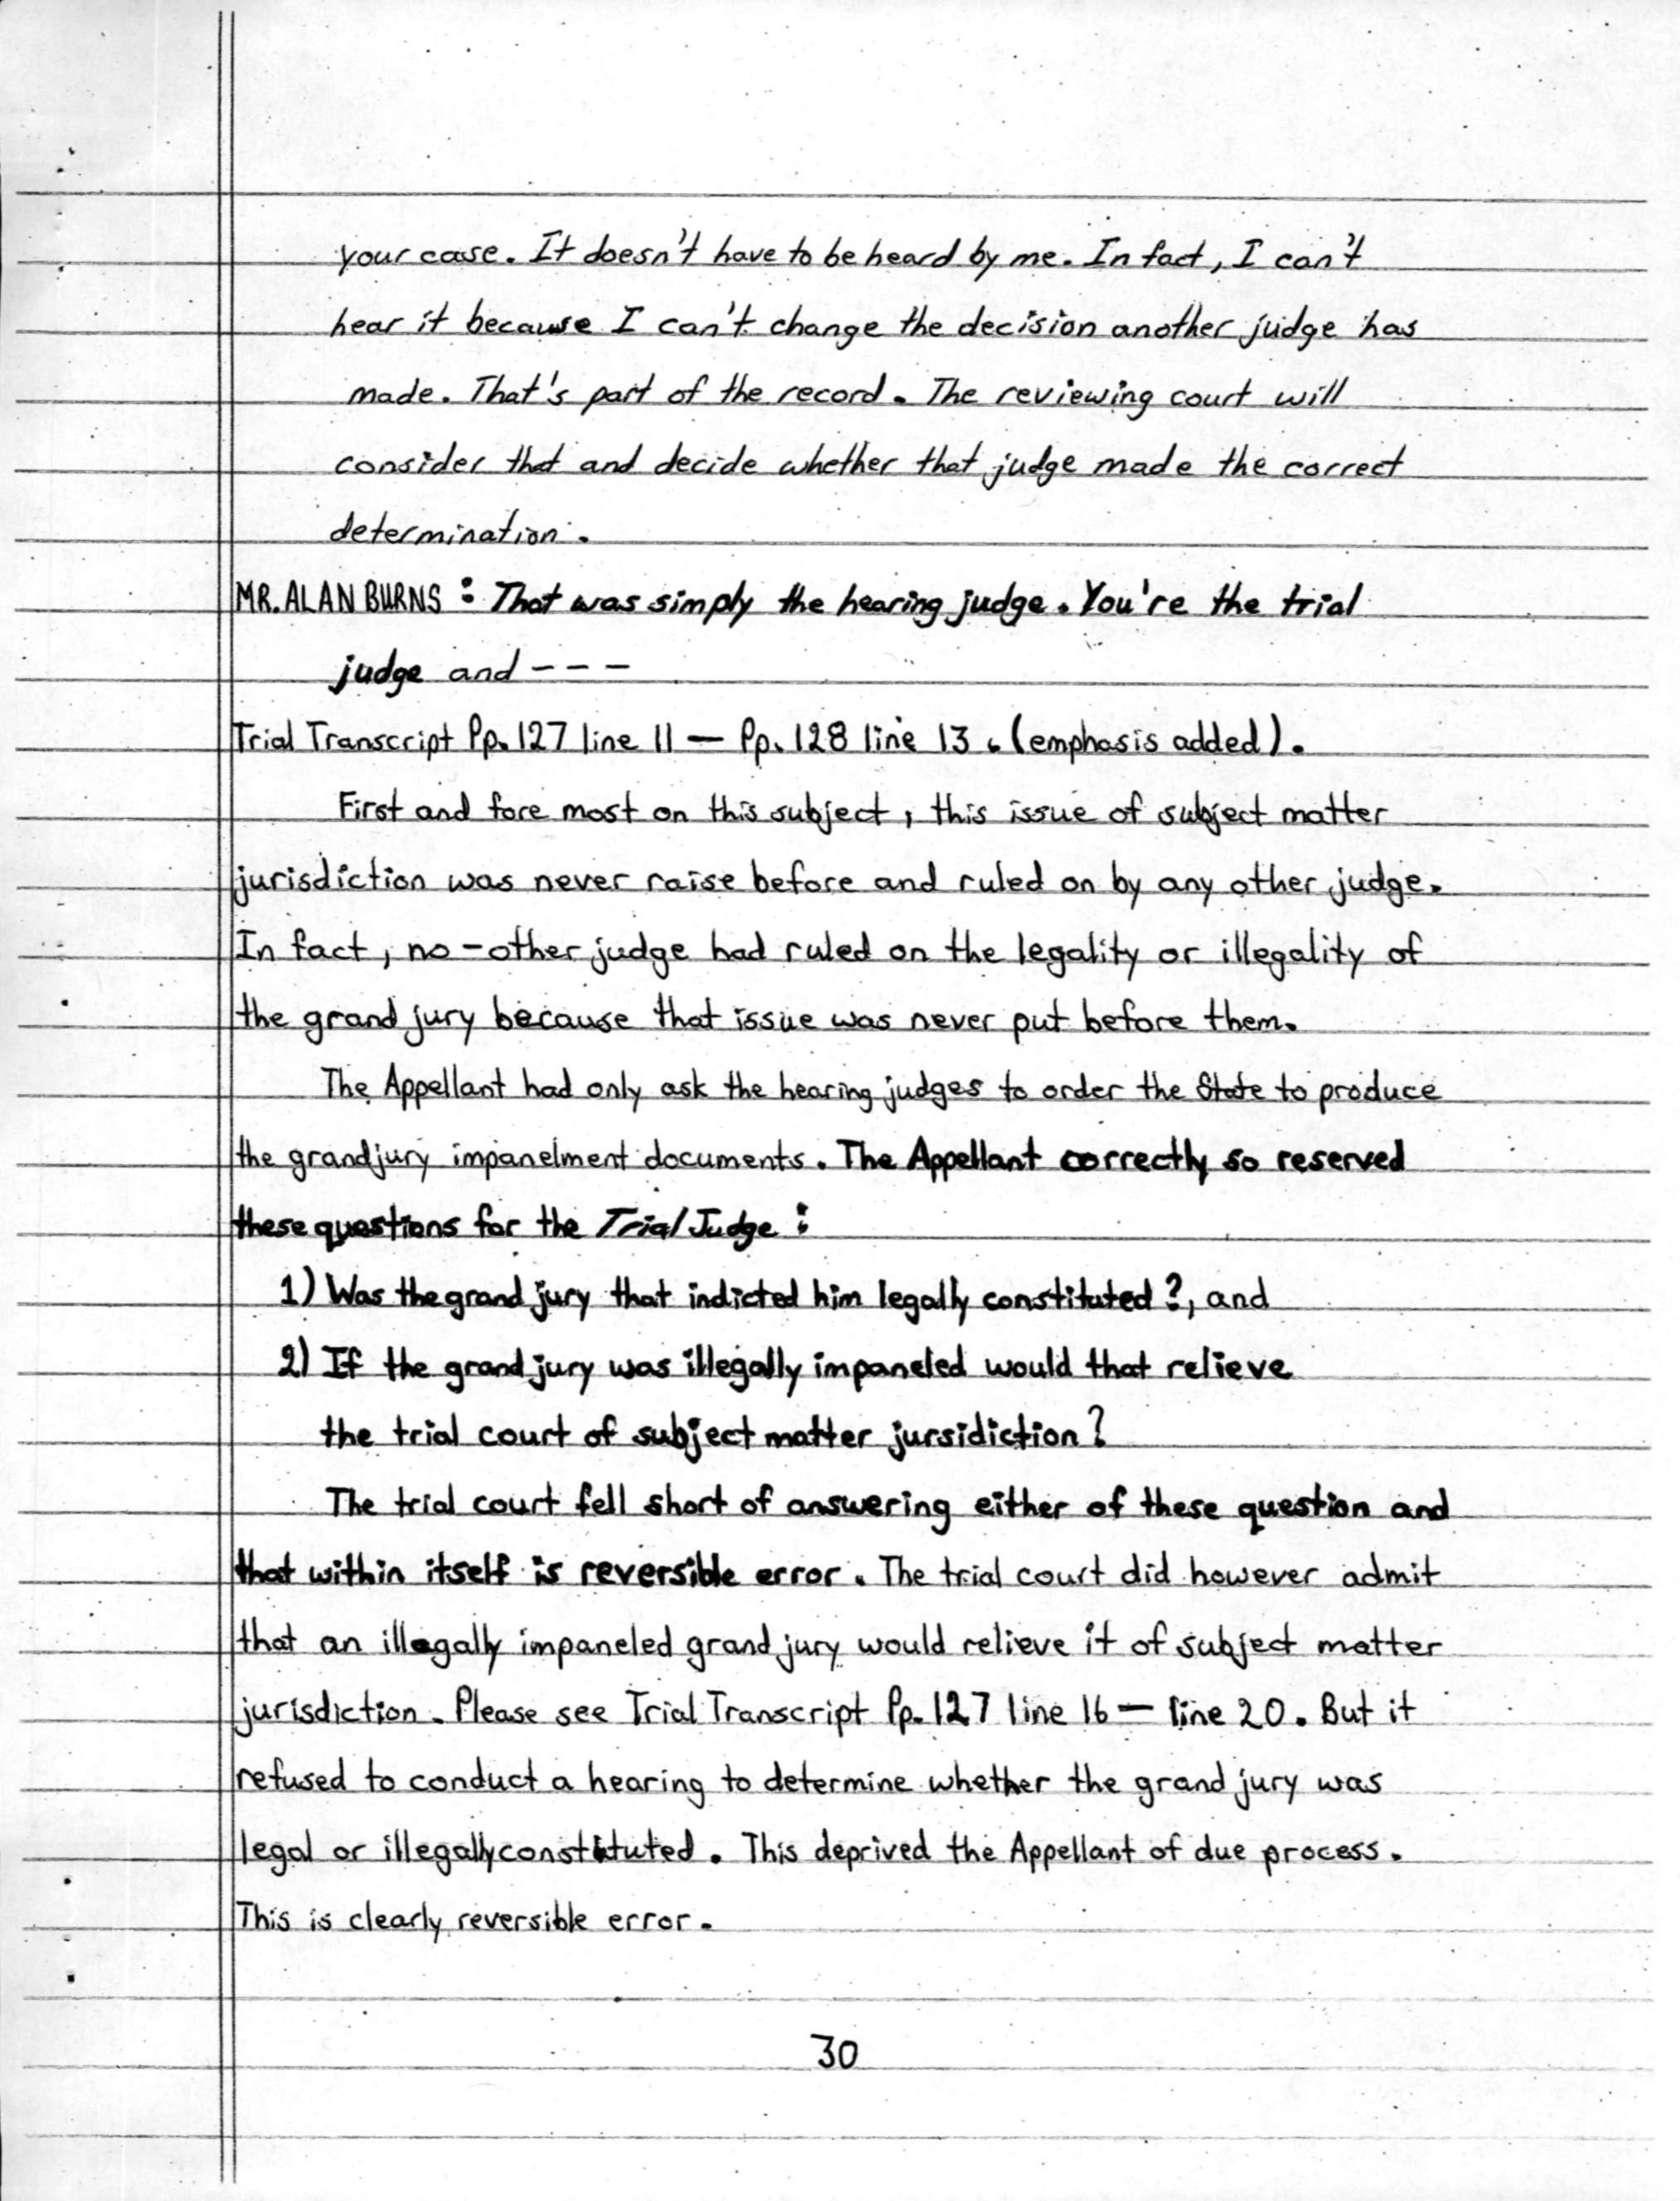 your case. It doesn't have to be heard by me. In fact, I can't
hear it because I can't change the decision another judge has
made. That's part of the record. The reviewing court will
consider that and decide whether that judge made the correct
determination.
MR. ALAN BURNS: That was simply the hearing judge. You're the trial
judge and ---
Trial Transcript Pp. 127 line 11 — Pp. 128 line 13. (emphasis added).
First and fore most on this subject, this issue of subject matter
jurisdiction was never raise before and ruled on by any other judge.
In fact, no-other judge had ruled on the legality or illegality of
the grand jury because that issue was never put before them.
The Appellant had only ask the hearing judges to order the State to produce
the grand jury impanelment documents. The Appellant correctly so reserved
these questions for the Trial Judge:
1) Was the grand jury that indicted him legally constituted?, and
2) If the grand jury was illegally impaneled would that relieve
the trial court of subject matter jursidiction?
The trial court fell short of answering either of these question and
that within itself is reversible error. The trial court did however admit
that an illegally impaneled grand jury would relieve it of subject matter
jurisdiction. Please see Trial Transcript Pp. 127 line 16 — line 20. But it
refused to conduct a hearing to determine whether the grand jury was
legal or illegally constituted. This deprived the Appellant of due process.
This is clearly reversible error.
30